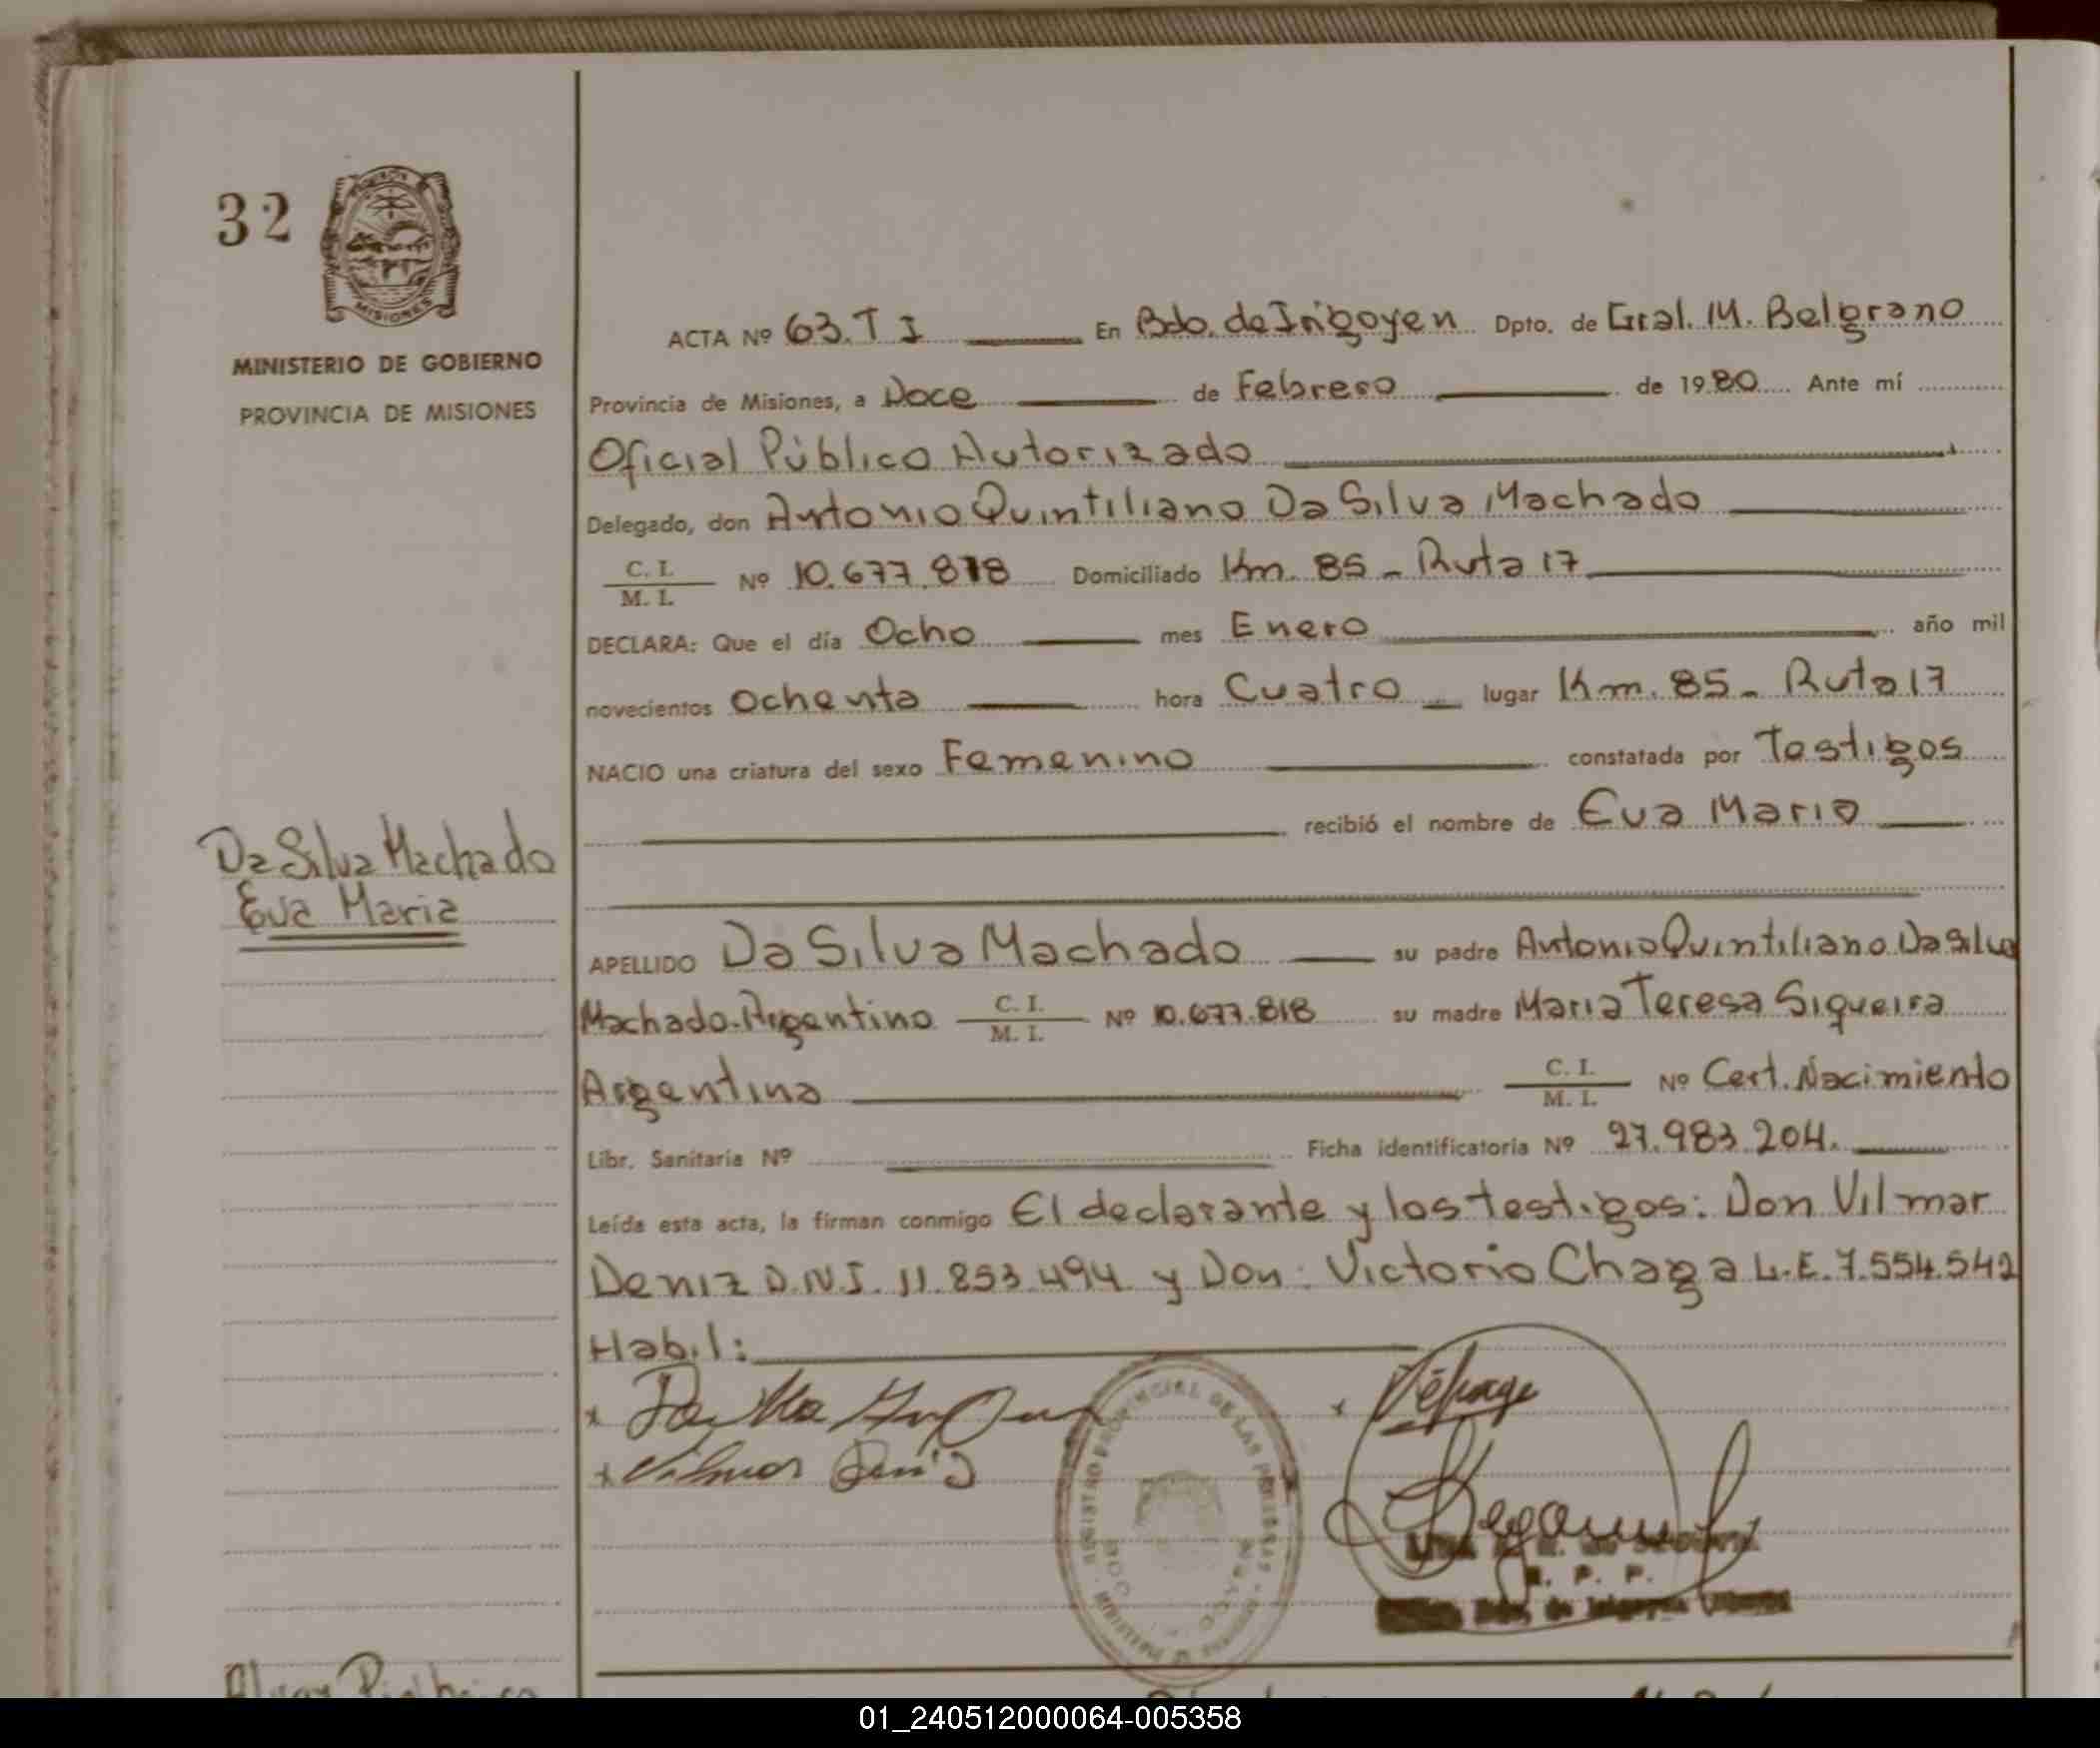 32
MISIONES
MINISTERIO DE GOBIERNO
PROVINCIA DE MISIONES
Da Silva Machado
Eva Maria
ACTA Nº 63. T I En Bdo. de Irigoyen Dpto. de Gral. M. Belgrano
Provincia de Misiones, a Doce de Febrero de 1980 Ante mí
Oficial Público Autorizado
Delegado, don Antonio Quintiliano Da Silva Machado
C. I.
M. I. Nº 10.677.818 Domiciliado Km. 85 - Ruta 17
DECLARA: Que el día Ocho mes Enero año mil
novecientos Ochenta hora Cuatro lugar Km. 85 - Ruta 17
NACIO una criatura del sexo Femenino constatada por Testigos
recibió el nombre de Eva Maria
APELLIDO Da Silva Machado su padre Antonio Quintiliano Da Silva
Machado. Argentino C. I. M. I. Nº 10.677.818 su madre Maria Teresa Siqueira
Argentina C. I. M. I. Nº Cert. Nacimiento
Libr. Sanitaria Nº Ficha identificatoria Nº 27.983.204.
Leída esta acta, la firman conmigo El declarante y los testigos: Don Vilmar
Deniz D.N.I. 11.853.494 y Don: Victorio Chaga L.E. 7.554.542
Habil:
Vilmar Deniz
R. P. P.
01_240512000064-005358